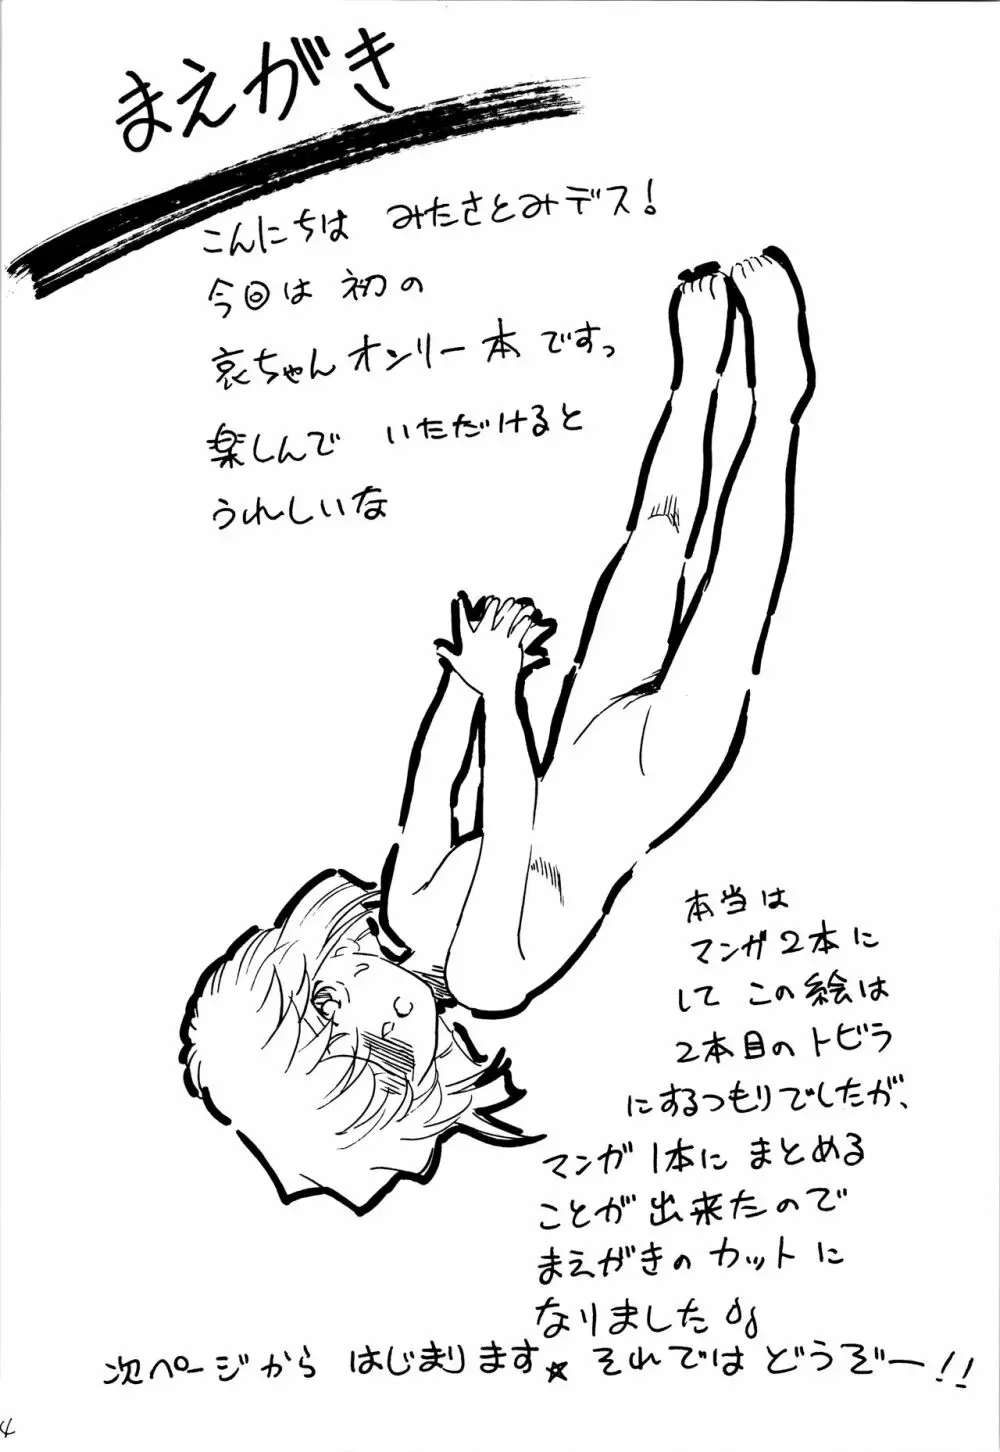 まえがき
こんにちは みたさとみデス!
今回は 初の
哀ちゃんオンリー本ですっ
楽しんで いただけると
うれしいな
本当は
マンガ2本に
して この絵は
2本目のトビラ
にするつもりでしたが、
マンガ1本に まとめる
ことが 出来たので
まえがきの カットに
なりました
次ページから はじまります☆ それでは どうぞー!!
4